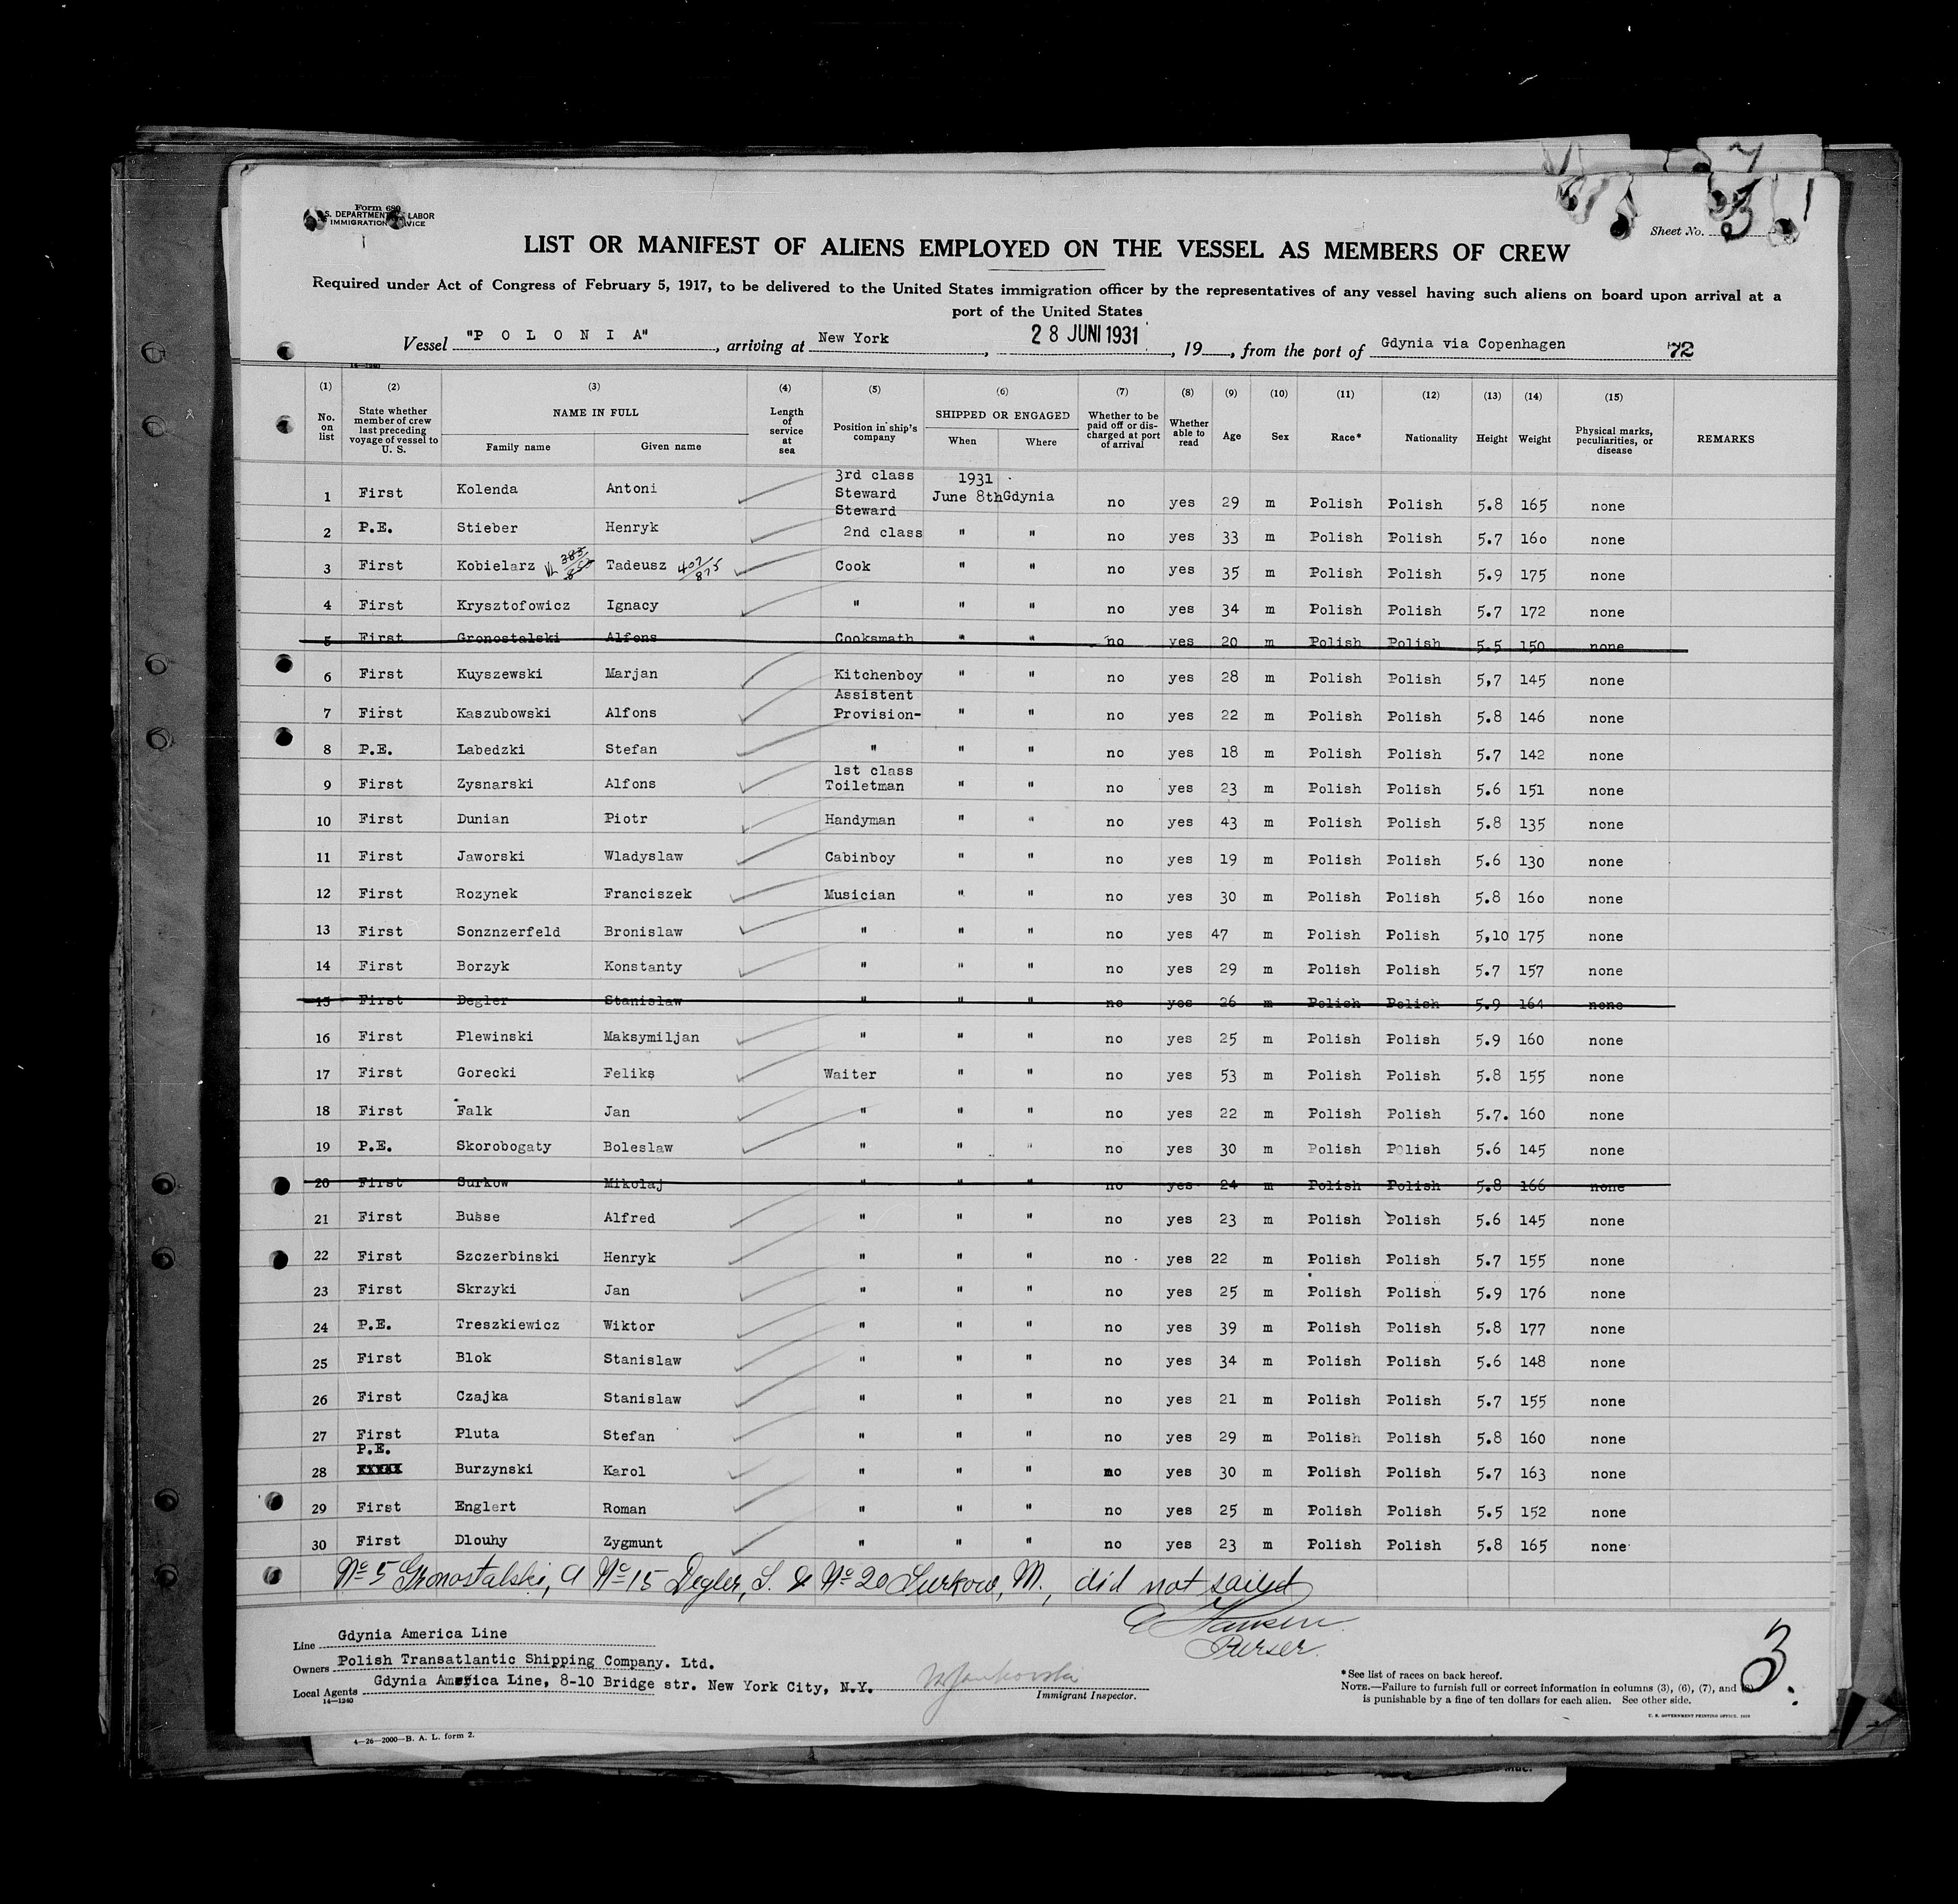 Form 689
S. DEPARTMENT LABOR
IMMIGRATION
Sheet No. 3
LIST OR MANIFEST OF ALIENS EMPLOYED ON THE VESSEL AS MEMBERS OF CREW
Required under Act of Congress of February 5, 1917, to be delivered to the United States immigration officer by the representatives of any vessel having such aliens on board upon arrival at a
port of the United States
Vessel "P O L O N I A", arriving at New York, 28 JUNI 1931, 19, from the port of Gdynia via Copenhagen 72
14—1240
(1) (2) (3) (4) (5) (6) (7) (8) (9) (10) (11) (12) (13) (14) (15)
No. on list State whether member of crew last preceding voyage of vessel to U. S. NAME IN FULL Family name Given name Length of service at sea Position in ship's company SHIPPED OR ENGAGED When Where Whether to be paid off or discharged at port of arrival Whether able to read Age Sex Race* Nationality Height Weight Physical marks, peculiarities, or disease REMARKS
1 First Kolenda Antoni 3rd class Steward 1931 June 8th Gdynia no yes 29 m Polish Polish 5.8 165 none
2 P.E. Stieber Henryk Steward 2nd class " " no yes 33 m Polish Polish 5.7 160 none
3 First Kobielarz Tadeusz 407/875 Cook " " no yes 35 m Polish Polish 5.9 175 none
4 First Krysztofowicz Ignacy " " " no yes 34 m Polish Polish 5.7 172 none
5 First Gronostalski Alfons Cooksmath " " no yes 20 m Polish Polish 5.5 150 none
6 First Kuyszewski Marjan Kitchenboy " " no yes 28 m Polish Polish 5,7 145 none
7 First Kaszubowski Alfons Assistent Provision- " " no yes 22 m Polish Polish 5.8 146 none
8 P.E. Labedzki Stefan " " " no yes 18 m Polish Polish 5.7 142 none
9 First Zysnarski Alfons 1st class Toiletman " " no yes 23 m Polish Polish 5.6 151 none
10 First Dunian Piotr Handyman " " no yes 43 m Polish Polish 5.8 135 none
11 First Jaworski Wladyslaw Cabinboy " " no yes 19 m Polish Polish 5.6 130 none
12 First Rozynek Franciszek Musician " " no yes 30 m Polish Polish 5.8 160 none
13 First Sonznzerfeld Bronislaw " " " no yes 47 m Polish Polish 5,10 175 none
14 First Borzyk Konstanty " " " no yes 29 m Polish Polish 5.7 157 none
15 First Degler Stanislaw " " " no yes 26 m Polish Polish 5.9 164 none
16 First Plewinski Maksymiljan " " " no yes 25 m Polish Polish 5.9 160 none
17 First Gorecki Feliks Waiter " " no yes 53 m Polish Polish 5.8 155 none
18 First Falk Jan " " " no yes 22 m Polish Polish 5.7. 160 none
19 P.E. Skorobogaty Boleslaw " " " no yes 30 m Polish Polish 5.6 145 none
20 First Surkow Mikolaj " " " no yes 24 m Polish Polish 5.8 166 none
21 First Busse Alfred " " " no yes 23 m Polish Polish 5.6 145 none
22 First Szczerbinski Henryk " " " no yes 22 m Polish Polish 5.7 155 none
23 First Skrzyki Jan " " " no yes 25 m Polish Polish 5.9 176 none
24 P.E. Treszkiewicz Wiktor " " " no yes 39 m Polish Polish 5.8 177 none
25 First Blok Stanislaw " " " no yes 34 m Polish Polish 5.6 148 none
26 First Czajka Stanislaw " " " no yes 21 m Polish Polish 5.7 155 none
27 First Pluta Stefan " " " no yes 29 m Polish Polish 5.8 160 none
28 P.E. Burzynski Karol " " " no yes 30 m Polish Polish 5.7 163 none
29 First Englert Roman " " " no yes 25 m Polish Polish 5.5 152 none
30 First Dlouhy Zygmunt " " " no yes 23 m Polish Polish 5.8 165 none
No 5 Gronostalski, A No 15 Degler, S. & No 20 Surkow, M., did not sailed
C Hansen
Purser.
Line Gdynia America Line
Owners Polish Transatlantic Shipping Company. Ltd.
Local Agents Gdynia America Line, 8-10 Bridge str. New York City, N.Y.
14—1240
Immigrant Inspector.
*See list of races on back hereof.
NOTE.—Failure to furnish full or correct information in columns (3), (6), (7), and
is punishable by a fine of ten dollars for each alien. See other side.
U. S. GOVERNMENT PRINTING OFFICE.
3.
4—26—2000—B. A. L. form 2.